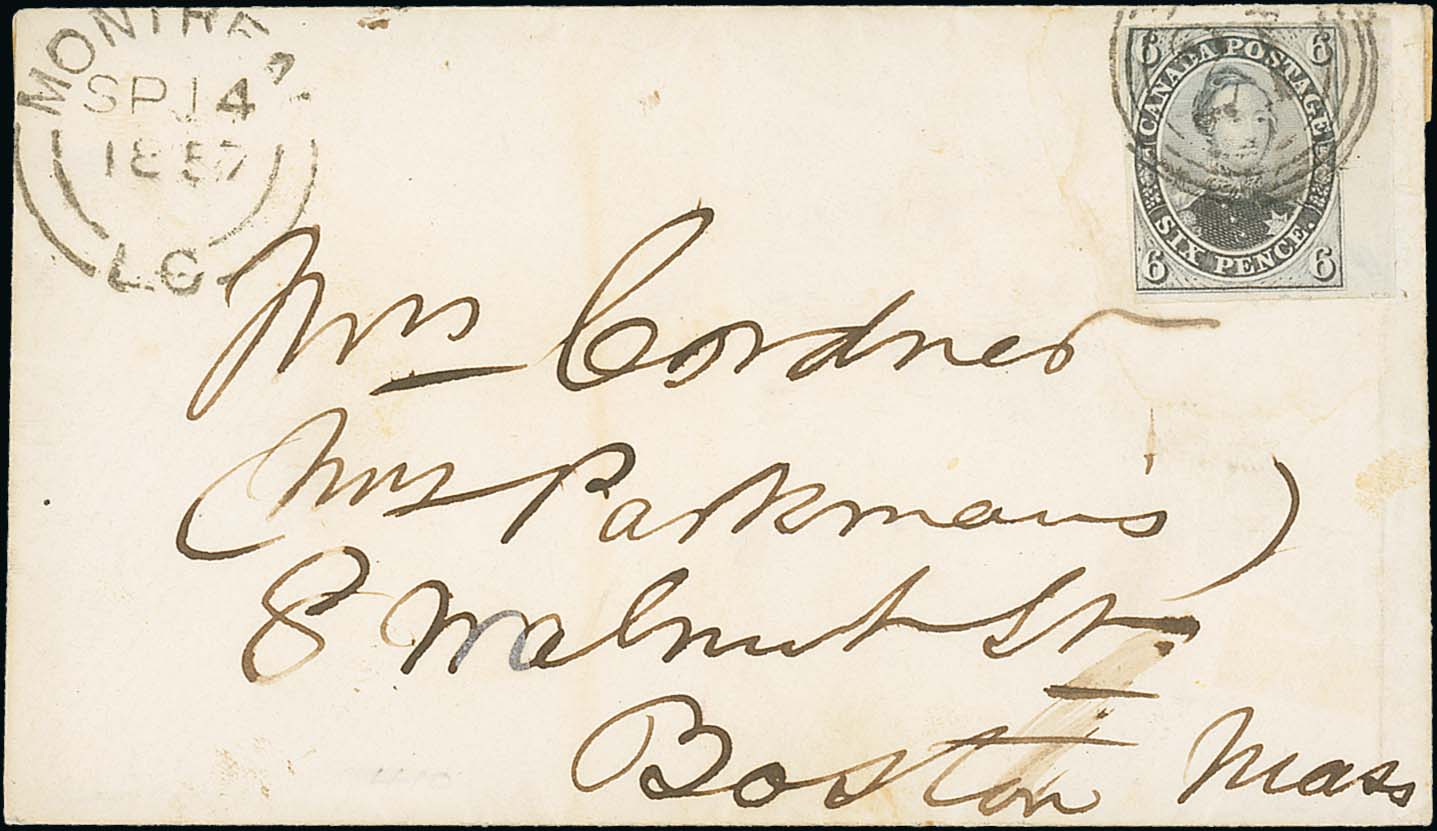 MONTREAL
SP 14
1857
L.C
6 6
CANADA POSTAGE
SIX PENCE.
6 6
Mrs Cordner
(Mrs Parkman's)
8 Walnut St.
Boston Mass